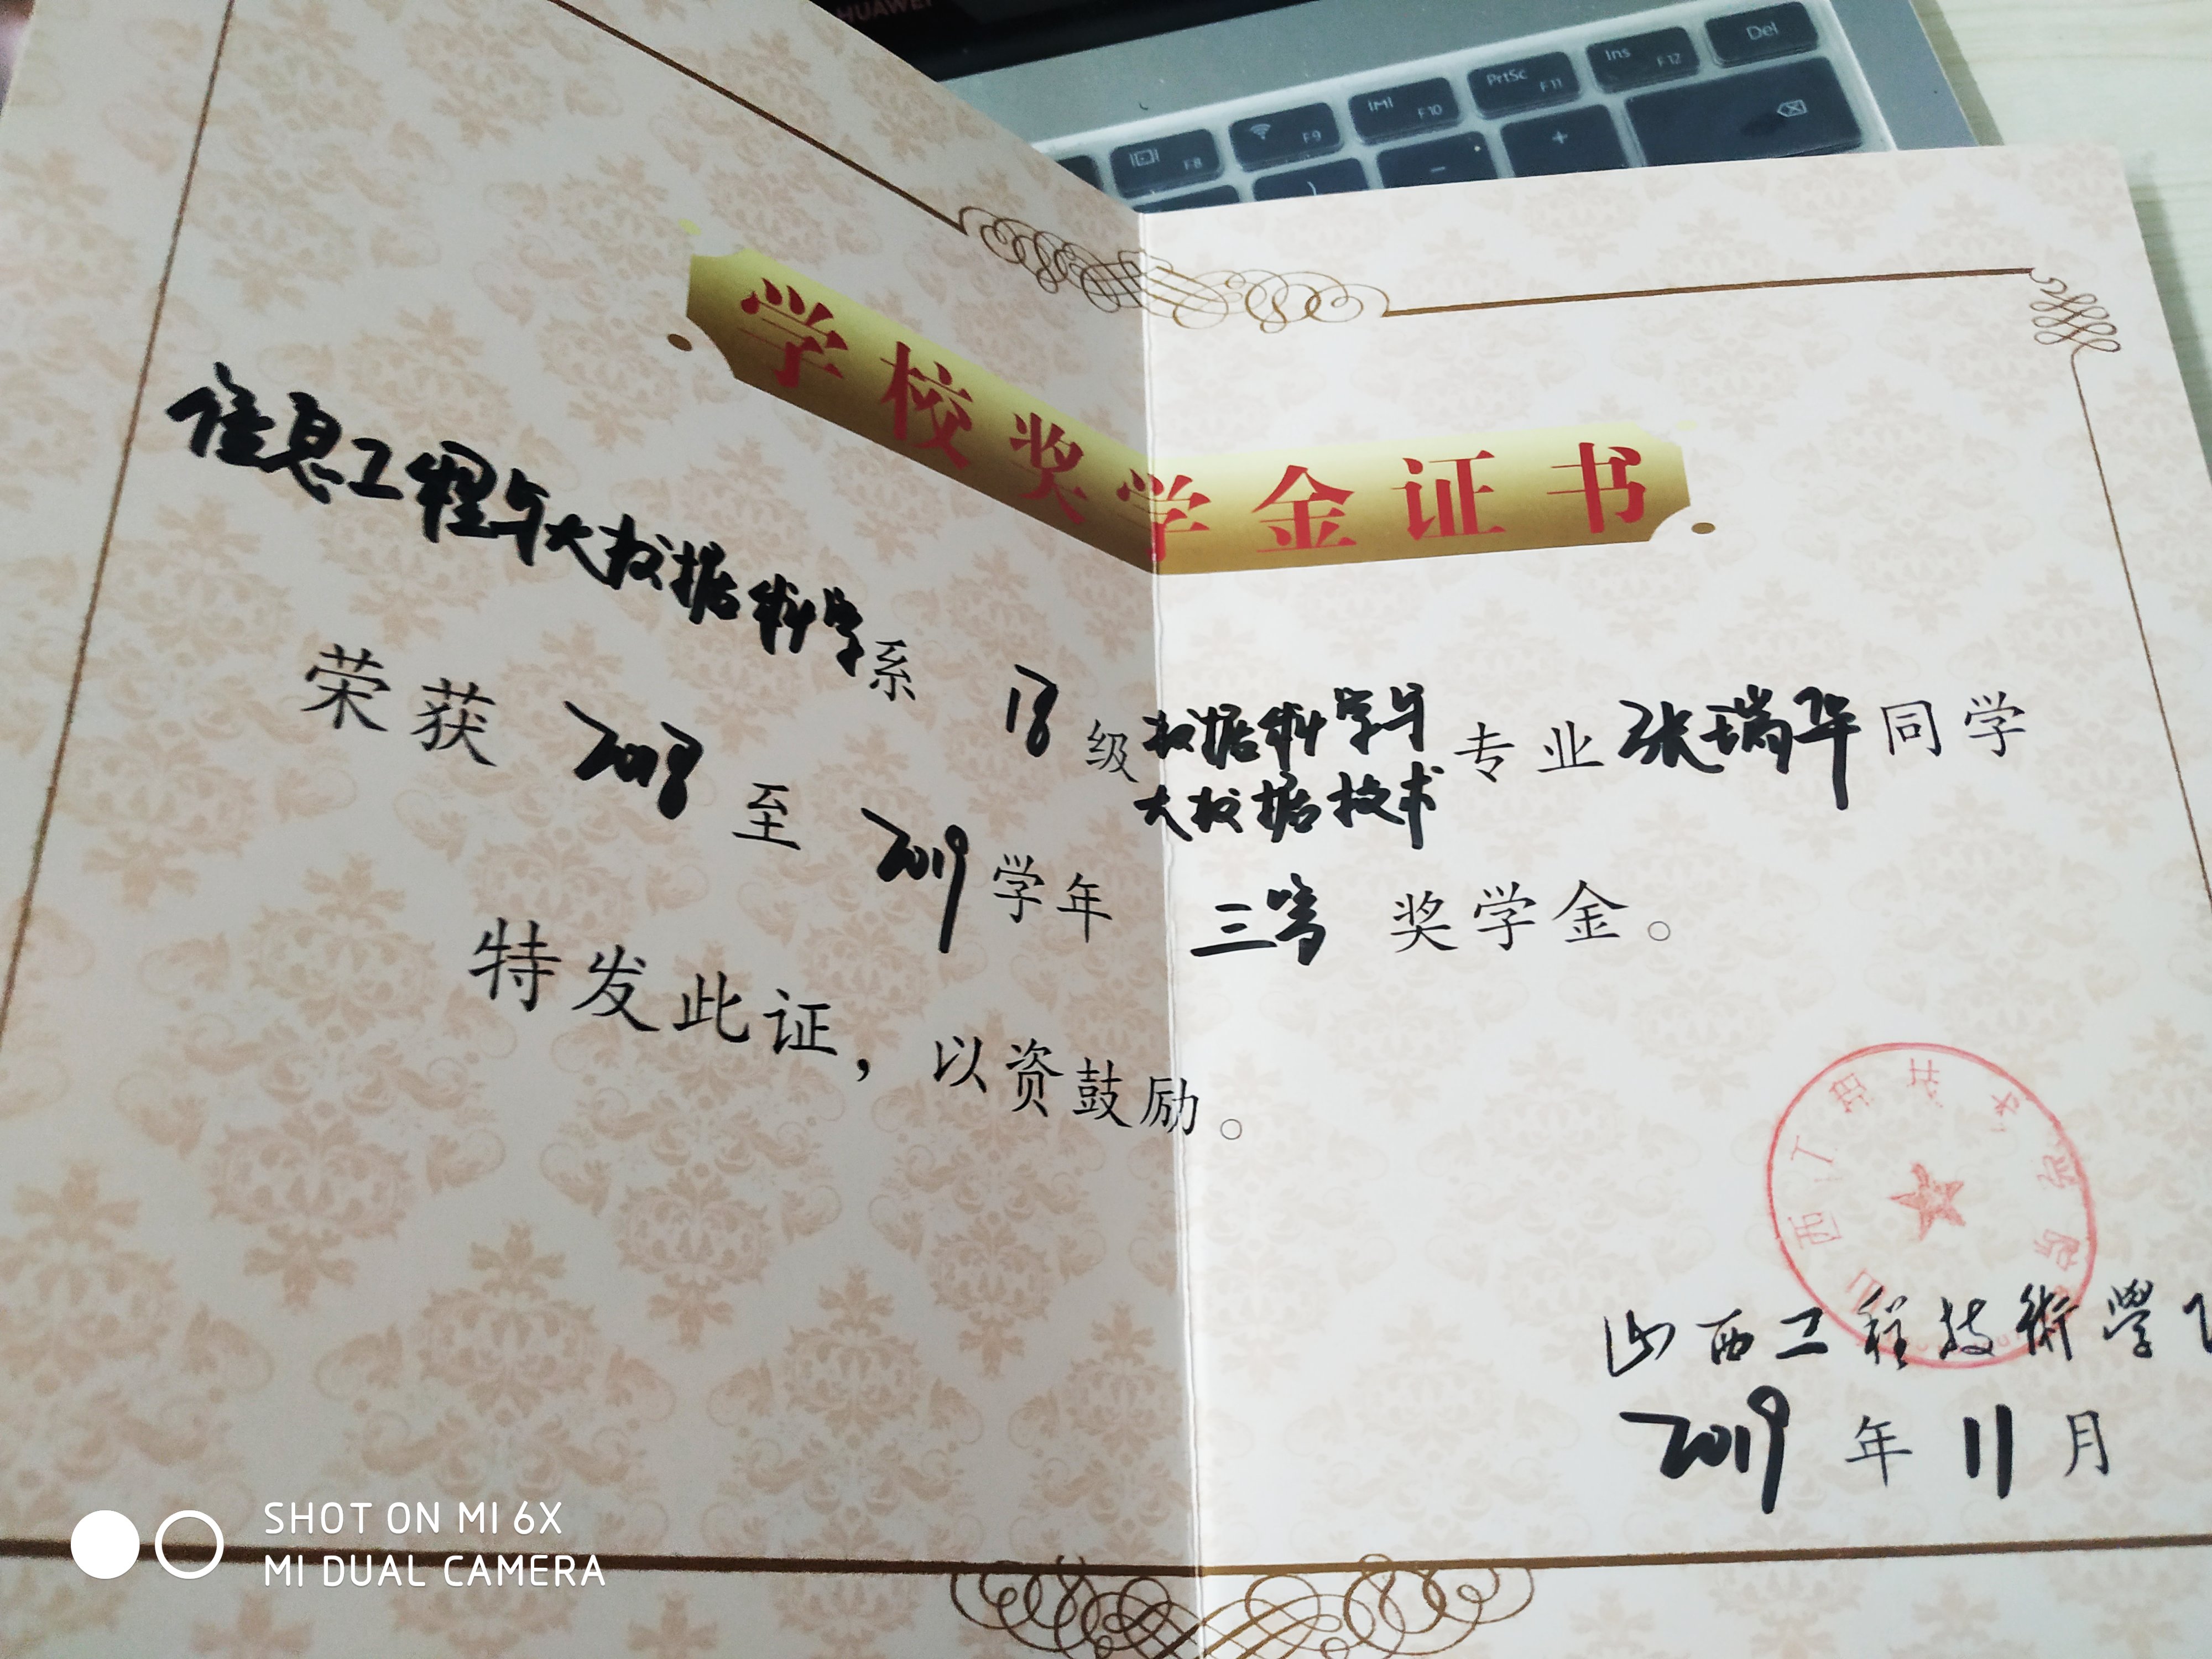 HUAWEI
Del
Ins F12
PrtSc F11
F10
F9
F8
+
-
)
学校奖学金证书
信息工程与大数据科学系 18级 数据科学与大数据技术 专业 张瑞华 同学
荣获 2018 至 2019 学年 三等 奖学金。
特发此证，以资鼓励。
山西工程技术学院
山西工程技術學
2019 年 11 月
SHOT ON MI 6X
MI DUAL CAMERA